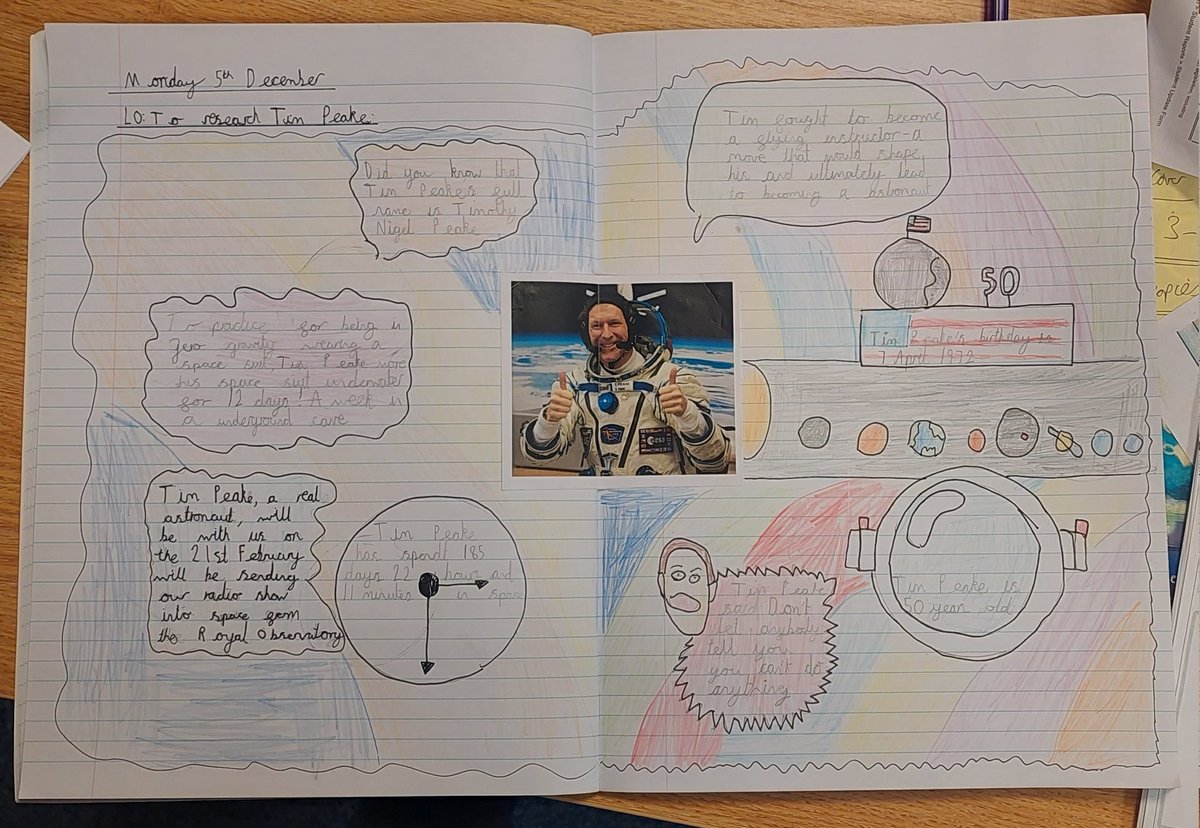 Monday 5th December
LO: To research Tim Peake.
Did you know that
Tim Peake's full
name is Timothy
Nigel Peake
To practice for being in
zero gravity wearing a
space suit, Tim Peake wore
his space suit underwater
for 12 days. A week in
a underground cave
Tim Peake, a real
astronaut, will
be with us on
the 21st February
will be sending
our radio show
into space from
the Royal Observatory
Tim Peake
has spent 185
days 22 hours and
11 minutes in space
Tim fought to become
a flying instructor-a
move that would shape
his and ultimately lead
to becoming a astronaut
50
Tim Peake's birthday is
7 April 1972
Tim Peake is
50 year old
Tim Peake
said Don't
let anybody
tell you
you can't do
anything
esa
Student Reports > Student Update Form
cover
3-